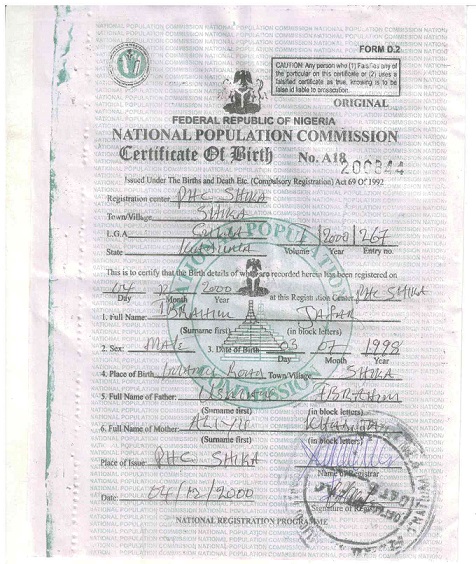 FORM D.2
CAUTION Any person who (1) Falsifies any of
the particular on this certificate or (2) uses a
falsified certificate as true, knowing is to be
false is liable to prosecution.
ORIGINAL
FEDERAL REPUBLIC OF NIGERIA
NATIONAL POPULATION COMMISSION
Certificate Of Birth No. A18 200844
Issued Under The Births and Death Etc. (Compulsory Registration) Act 69 Of 1992
Registration center PHC SHIKA
Town/Village SHIKA
L.G.A. 2000 267
State KADUNA Volume Year Entry no.
This is to certify that the Birth details of which are recorded herein has been registered on
04 12 2000 at this Registration Center PHC SHIKA
Day Month Year
1. Full Name: IBRAHIM
(Surname first) (in block letters)
2. Sex: MALE 3. Date of Birth 03 07 1998
Day Month Year
4. Place of Birth Town/Village SHIKA
5. Full Name of Father: IBRAHIM
(Surname first) (in block letters)
6. Full Name of Mother: ALIYU
(Surname first) (in block letter)
Place of Issue: PHC SHIKA
Name of Registrar
Date: 04/12/2000
Signature of Registrar
NATIONAL REGISTRATION PROGRAMME